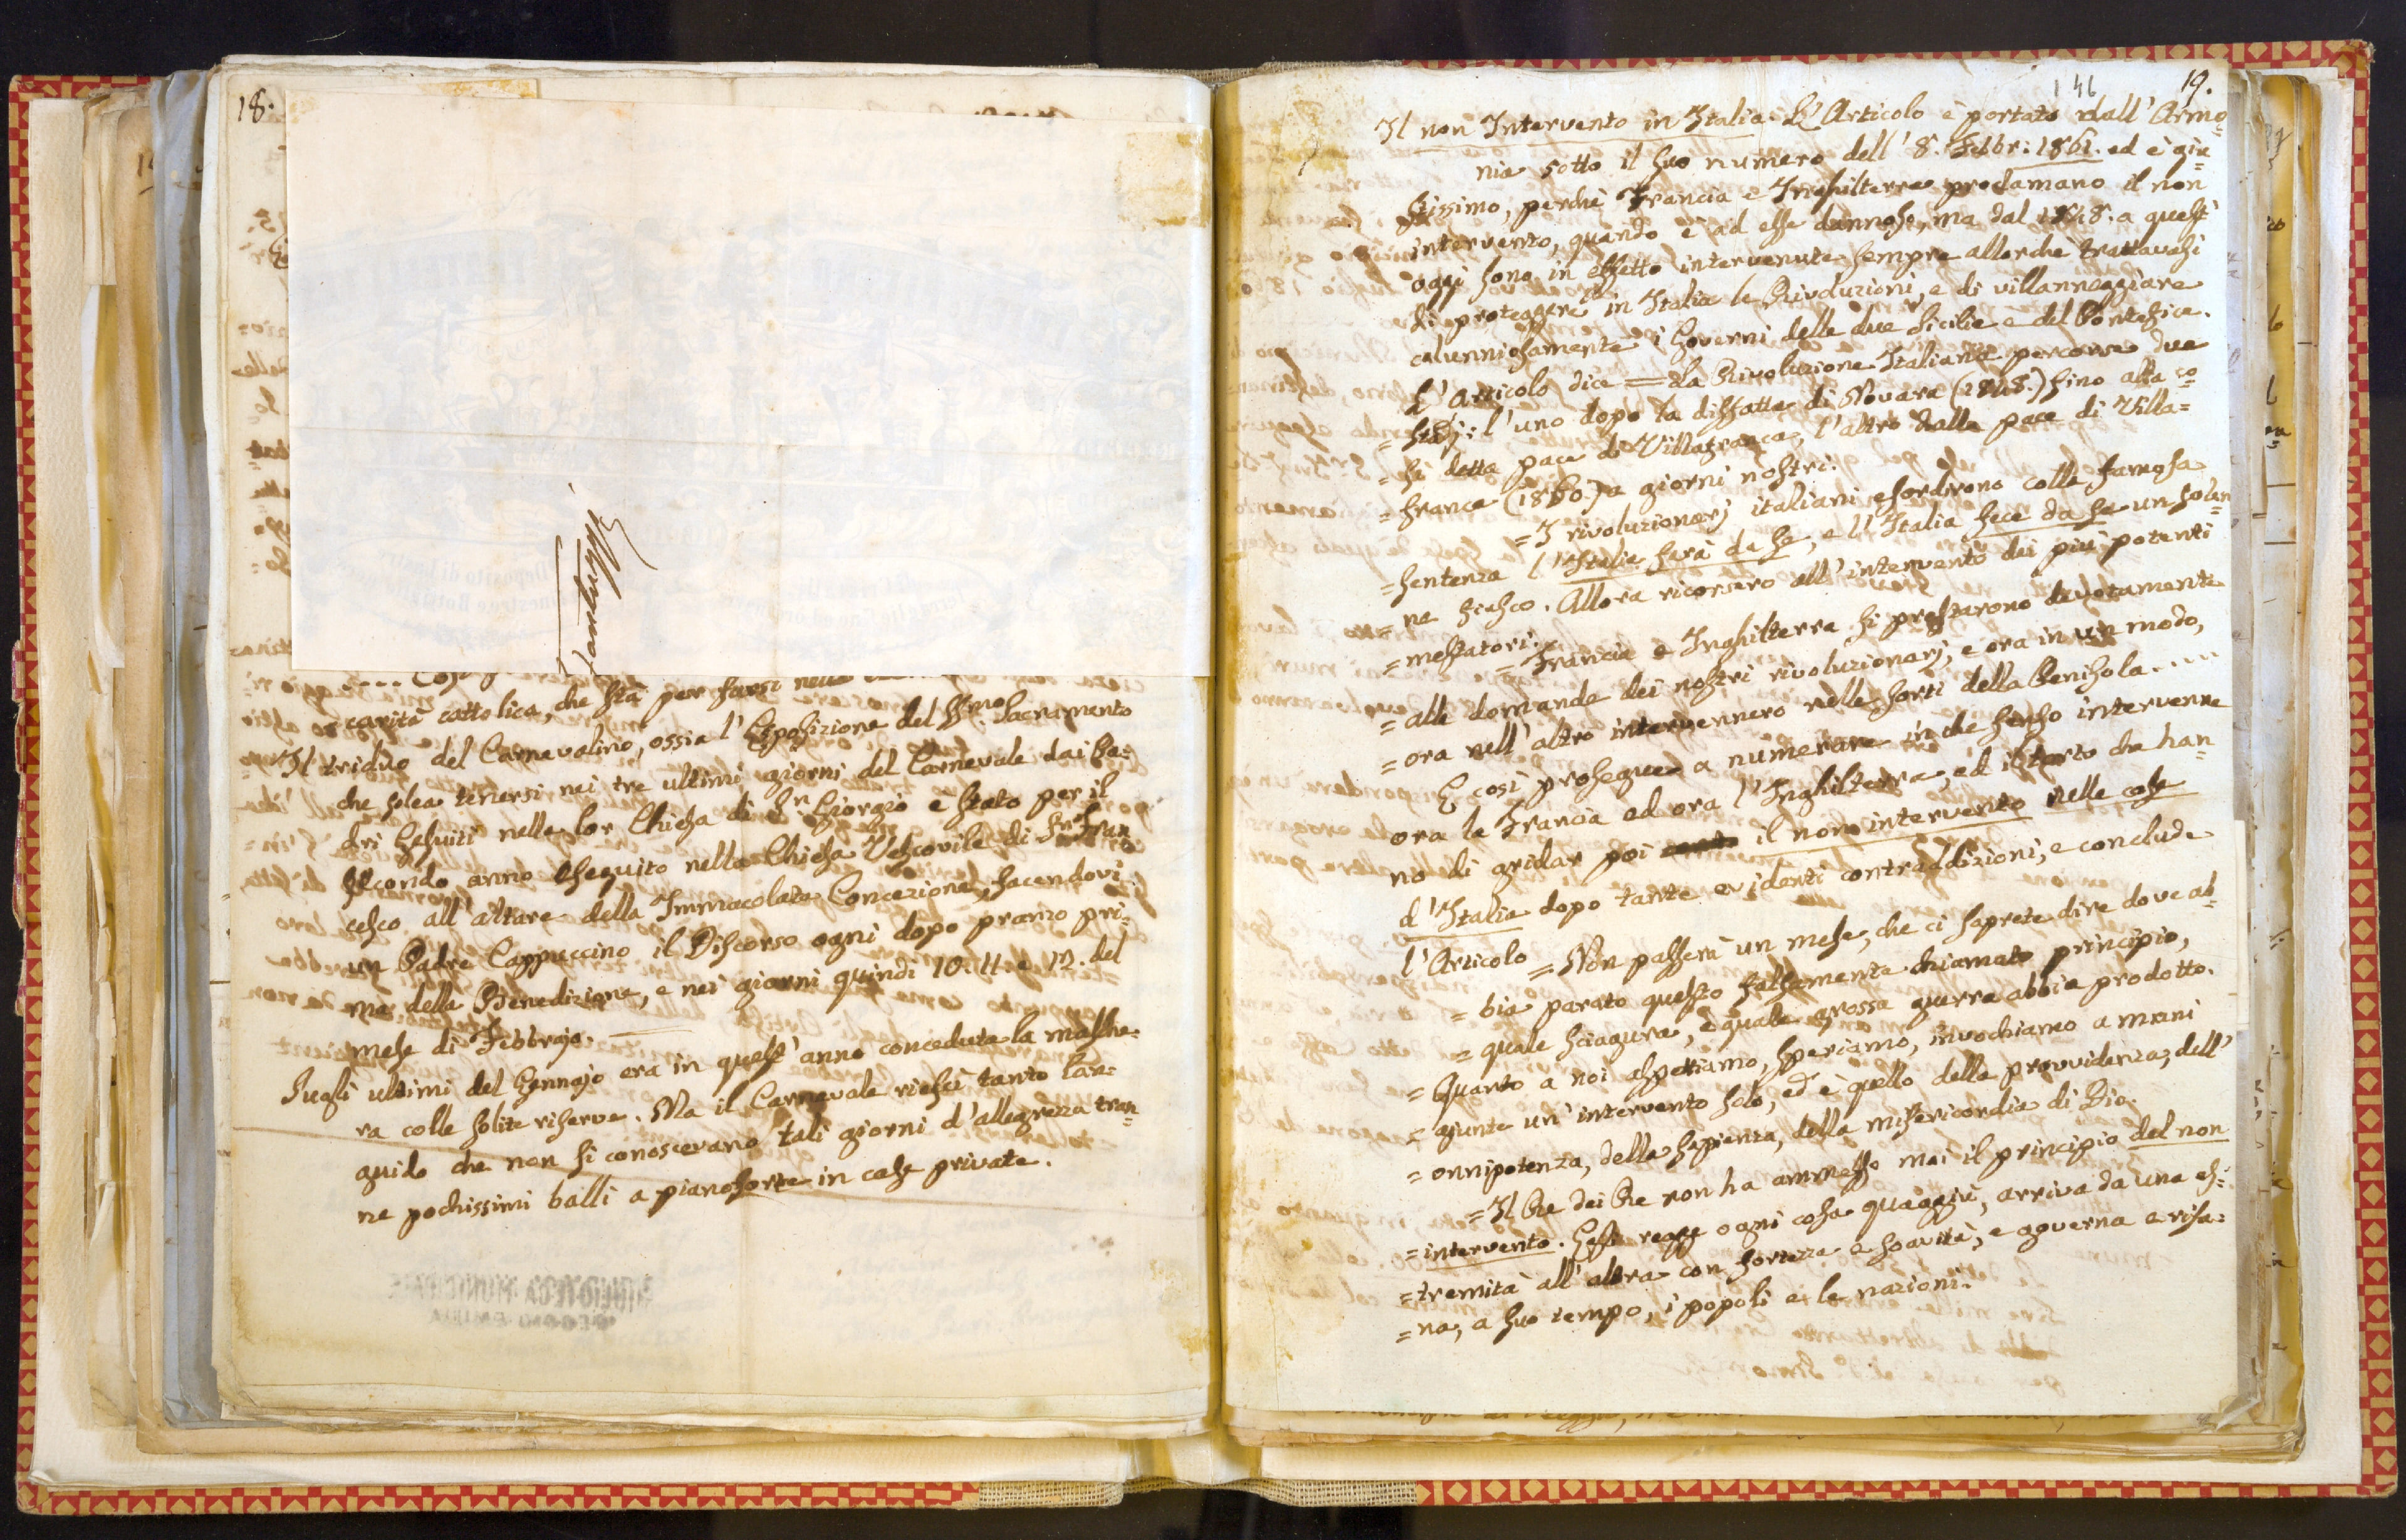 18.
carità cattolica, che sta per farsi nella
Il triduo del Carnevalino, ossia l'Esposizione del SSmo. Sacramento
che solea tenersi nei tre ultimi giorni del Carnevale dai Pa=
dri Gesuiti nella lor Chiesa di Sn Giorgio e stato per il
secondo anno eseguito nella Chiesa Vescovile di Sn Fran
cesco all'altare della Immacolata Concezione, facendovi
un Padre Cappuccino il Discorso ogni dopo pranzo pri=
ma della Benedizione, e nei giorni quindi 10. 11. e 12. del
mese di Febbrajo.
Sugli ultimi del Gennajo era in quest'anno conceduta la masche=
ra colle solite riserve. Ma il Carnevale riescì tanto lan=
guido che non si conoscevano tali giorni d'allegrezza tran=
ne pochissimi balli a pianoforte in case private.
146
19.
Il non Intervento in Italia. L'Articolo è portato dall'Armo=
nia sotto il suo numero dell'8. Febbr: 1861. ed è giu=
stissimo, perchè Francia e Inghilterra proclamano il non
intervento, quando è ad esse dannoso, ma dal 1848. a quest'
oggi sono in effetto intervenute sempre allorchè trattavasi
di proteggere in Italia le Rivoluzioni, e di villanneggiare
calunniosamente i Governi delle due Sicilie e del Pontefice.
L'Articolo dice = La Rivoluzione Italiana percorse due
= stadj: l'uno dopo la disfatta di Novara (1848.) fino alla co=
= si detta pace di Villafranca, l'altro dalla pace di Villa=
= franca (1860.) a giorni nostri.
= I rivoluzionarj italiani esordirono colla famosa
= sentenza l'Italia farà da se, e l'Italia fece da se un solen=
= ne fiasco. Allora ricorsero all'intervento dei più potenti
= mestatori.
= Francia e Inghilterra si prestarono devotamente
= alle domande dei nostri rivoluzionarj, e ora in un modo,
= ora nell'altro intervennero nelle sorti della Penisola....
E così prosegue a numerare in che senso intervenne
ora la Francia ed ora l'Inghilterra, ed il torto che han=
no di gridar poi il non intervento nelle cose
d'Italia dopo tante evidenti contraddizioni, e conclude
l'Articolo = Non passerà un mese, che ci saprete dire dove ab=
= bia parato questo falsamente chiamato principio,
= quale sciagura, e quale grossa guerra abbia prodotto.
= Quanto a noi aspettiamo, speriamo, invochiamo a mani
= giunte un'intervento solo, ed è quello della provvidenza, dell'
= onnipotenza, della sapienza, della misericordia di Dio.
= Il Re dei Re non ha ammesso mai il principio del non
= intervento. Egli regge ogni cosa quaggiù, arriva da una es=
= tremità all'altra con fortezza e soavità, e governa e risa=
= na, a suo tempo, i popoli e le nazioni.